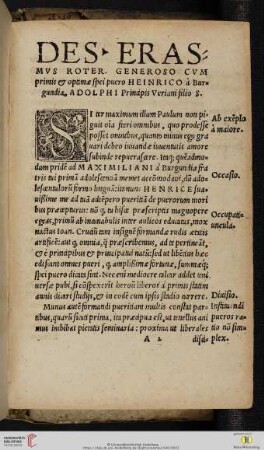 DES. ERAS-
MVS ROTER. GENEROSO CVM
primis & optimæ spei puero HEINRICO à Bur-
gundia, ADOLPHI Principis Veriani filio S.
SI ter maximum illum Paulum non pi-
guit oïa fieri omnibus, quo prodesse
posset omnibus, quanto minus ego gra-
uari debeo iuuandæ iuuentutis amore
subinde repuerascere. Itaq; quẽadmo-
dum pridẽ ad MAXIMILIANI à Burgundia fra
tris tui primã adolescentiã memet accõmodaui, dũ ado
lescentulorũ formo linguã: ita nunc HENRICE sua-
uissime me ad tuã attẽpero pueritiã de puerorum mori
bus præcepturus: nõ q̃ tu hisce præscriptis magnopere
egeas, primũ ab incunabulis inter aulicos educatus, mox
nactus tam insignẽ formandæ rudis ætatis
artificẽ: aut q̃ omnia, quæ præscribemus, ad te pertineãt,
& e principibus & principatui natũ: sed ut libẽtius hæc
ediscant omnes pueri, q̃ amplissimæ fortunæ, summæq;
spei puero dicata sint. Nec eni mediocre calcar addet uni
uersæ pubi, si cõspexerit heroũ liberos à primis statim
annis dicari studijs, & in eodẽ cum ipsis stadio currere.
Munus autẽ formandi pueritiam multis constat par-
tibus, quarũ sicuti prima, ita præcipua est, ut tenellus ani
mus imbibat pietatis seminaria: proxima, ut liberales
A 2 disci
Ab exẽplo
à maiore.
Occasio.
Occupati
uncula.
Diuisio.
Instituẽdi
pueros ra-
tio nõ sim-
plex.